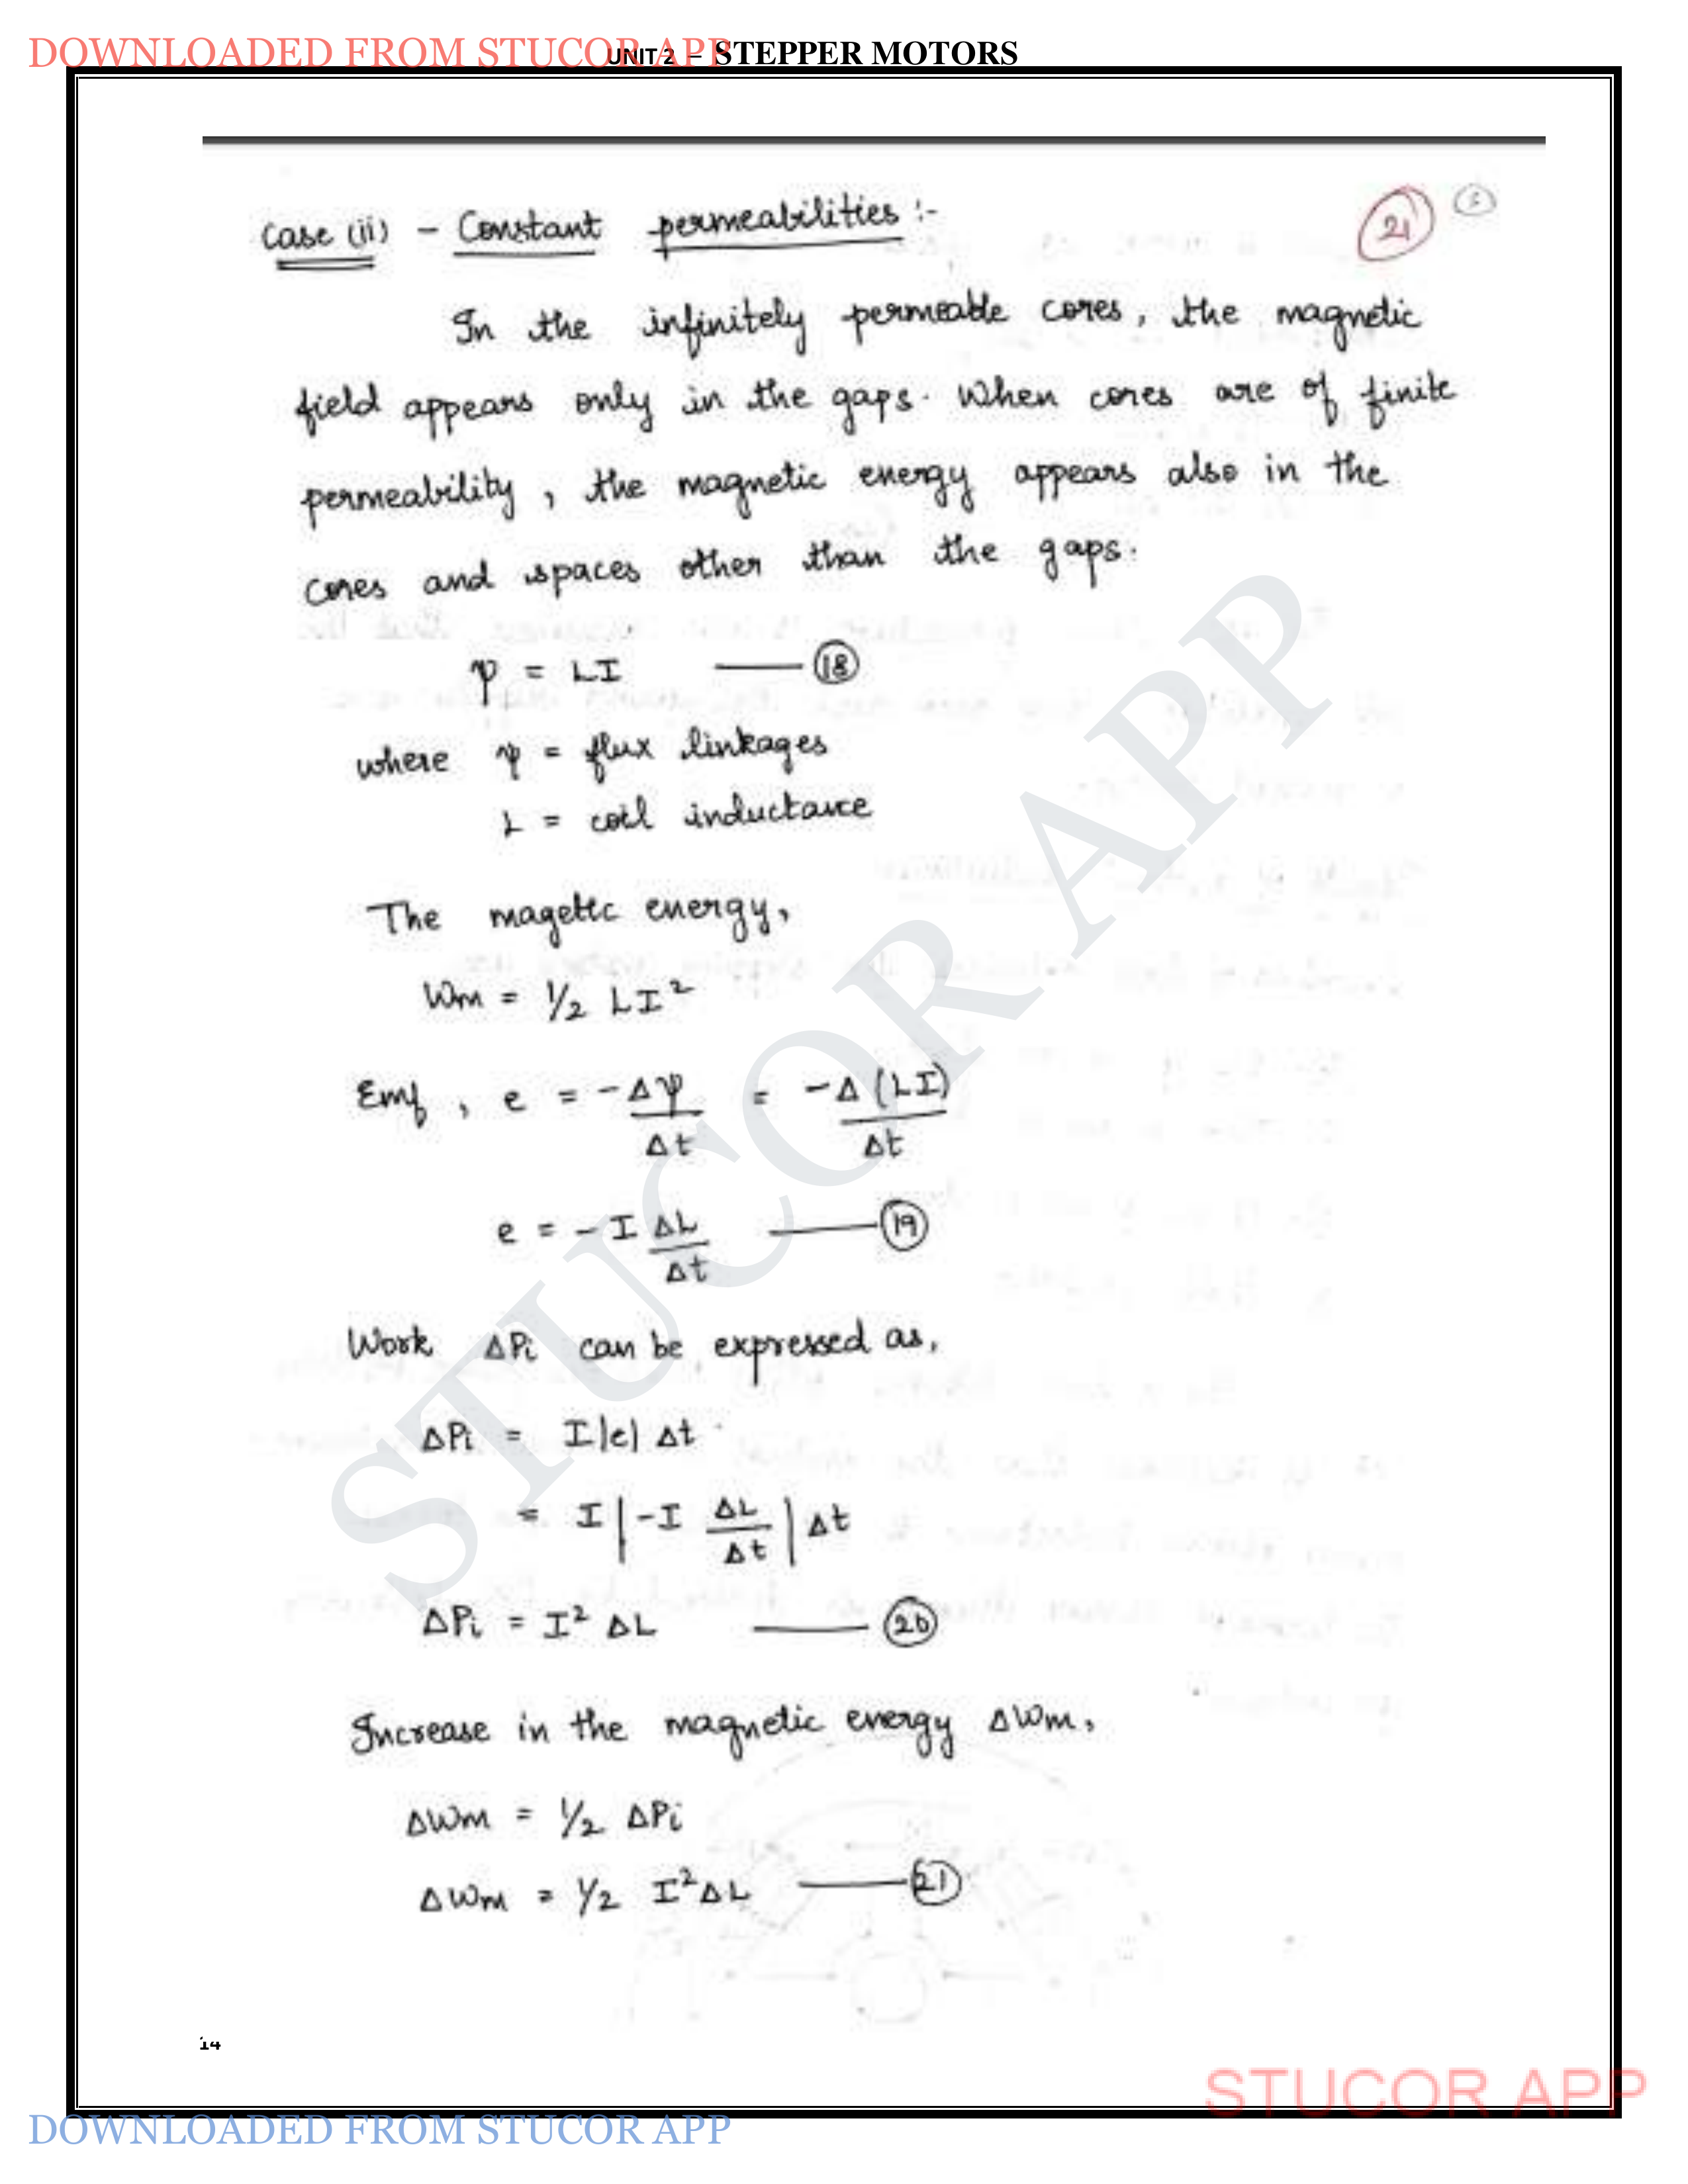 DOWNLOADED FROM STUCOR APP
UNIT 2 – STEPPER MOTORS
Case (ii) - Constant permeabilities :-
21
In the infinitely permeable cores, the magnetic
field appears only in the gaps. When cores are of finite
permeability, the magnetic energy appears also in the
cores and spaces other than the gaps.
ψ = LI —— 18
where ψ = flux linkages
L = coil inductance
The magetic energy,
Wm = 1/2 LI²
Emf, e = -Δψ/Δt = -Δ(LI)/Δt
e = -I ΔL/Δt —— 19
Work ΔPi can be expressed as,
ΔPi = I|e| Δt
= I|-I ΔL/Δt|Δt
ΔPi = I² ΔL —— 20
Increase in the magnetic energy ΔWm,
ΔWm = 1/2 ΔPi
ΔWm = 1/2 I²ΔL —— 21
14
STUCOR APP
STUCOR APP
DOWNLOADED FROM STUCOR APP